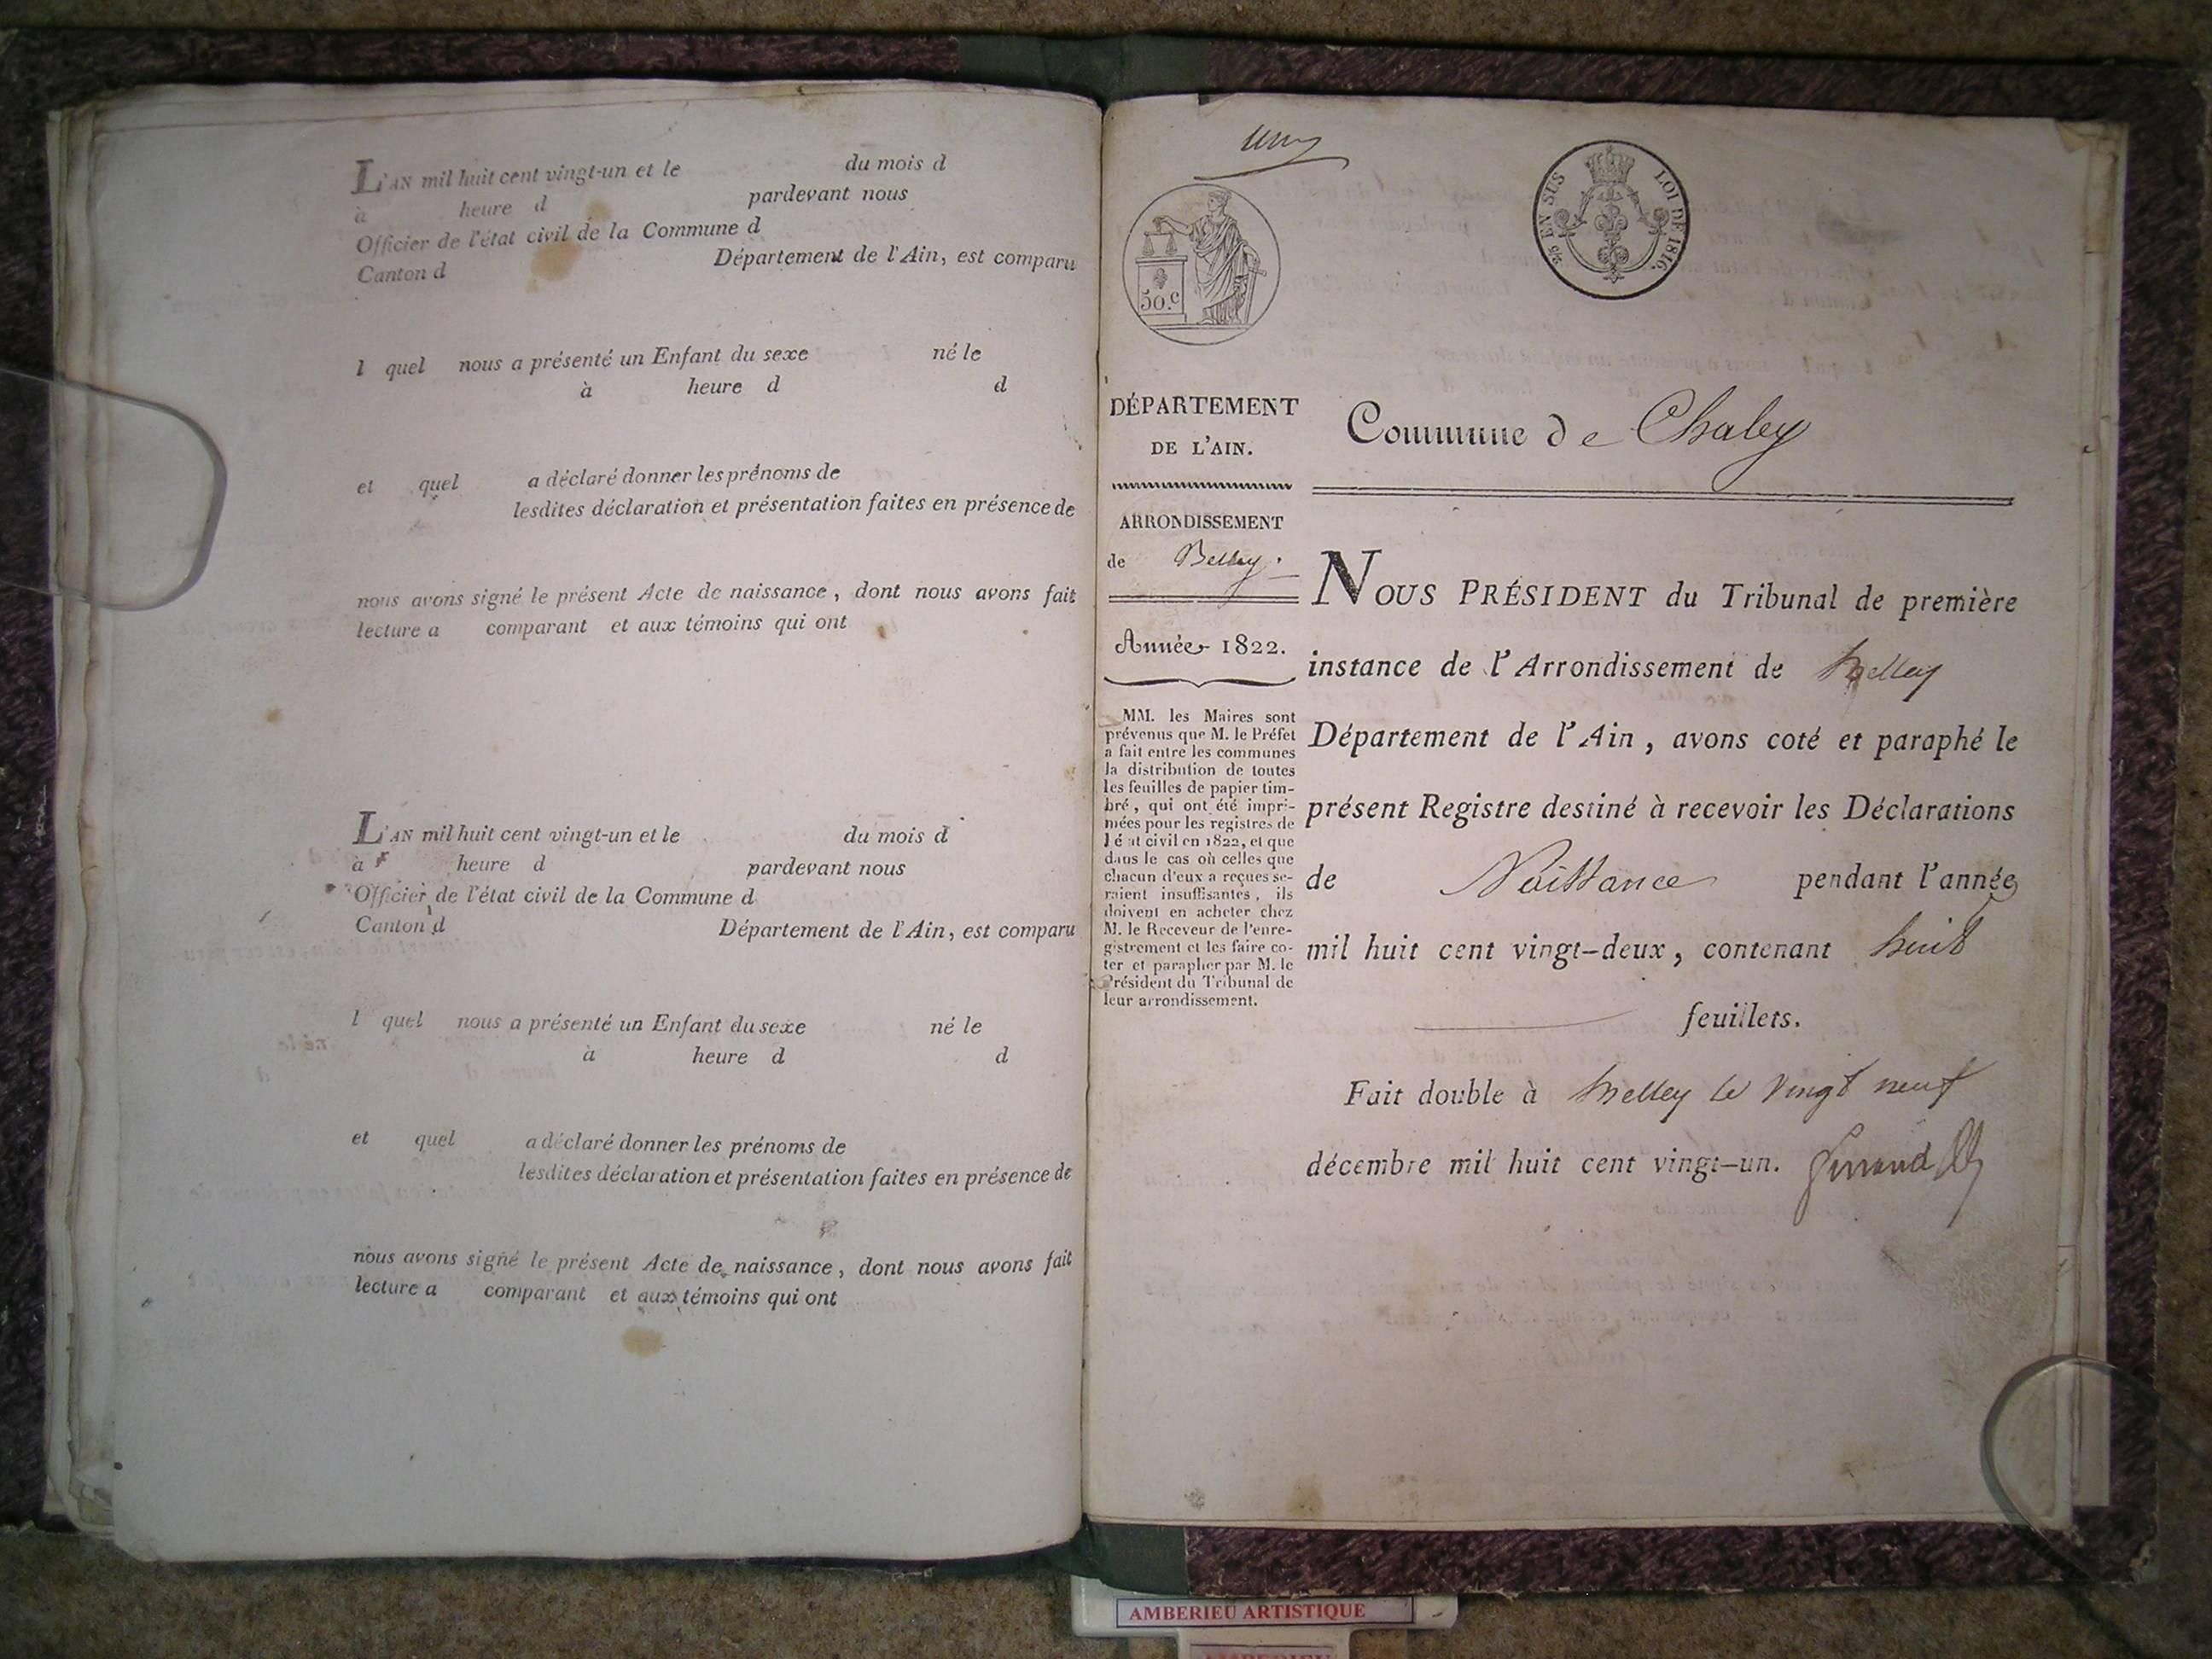 L'AN mil huit cent vingt-un et le du mois d
à heure d pardevant nous
Officier de l'état civil de la Commune d
Canton d Département de l'Ain, est comparu
l quel nous a présenté un Enfant du sexe né le
à heure d d
et quel a déclaré donner les prénoms de
lesdites déclaration et présentation faites en présence de
nous avons signé le présent Acte de naissance, dont nous avons fait
lecture a comparant et aux témoins qui ont
L'AN mil huit cent vingt-un et le du mois d
à heure d pardevant nous
Officier de l'état civil de la Commune d
Canton d Département de l'Ain, est comparu
l quel nous a présenté un Enfant du sexe né le
à heure d d
et quel a déclaré donner les prénoms de
lesdites déclaration et présentation faites en présence de
nous avons signé le présent Acte de naissance, dont nous avons fait
lecture a comparant et aux témoins qui ont
50.c
EN SUS LOI DE 1816.
DÉPARTEMENT
DE L'AIN.
ARRONDISSEMENT
de Belley.
Année 1822.
MM. les Maires sont
prévenus que M. le Préfet
a fait entre les communes
la distribution de toutes
les feuilles de papier tim-
bré, qui ont été impri-
mées pour les registres de
l'é at civil en 1822, et que
dans le cas où celles que
chacun d'eux a reçues se-
raient insuffisantes, ils
doivent en acheter chez
M. le Receveur de l'enre-
gistrement et les faire co-
ter et parapher par M. le
Président du Tribunal de
leur arrondissement.
Commune de Chaley
NOUS PRÉSIDENT du Tribunal de première
instance de l'Arrondissement de Belley
Département de l'Ain, avons coté et paraphé le
présent Registre destiné à recevoir les Déclarations
de Naissance pendant l'année
mil huit cent vingt-deux, contenant huit
feuillets.
Fait double à Belley le vingt neuf
décembre mil huit cent vingt-un.
AMBERIEU ARTISTIQUE
AMBERIEU